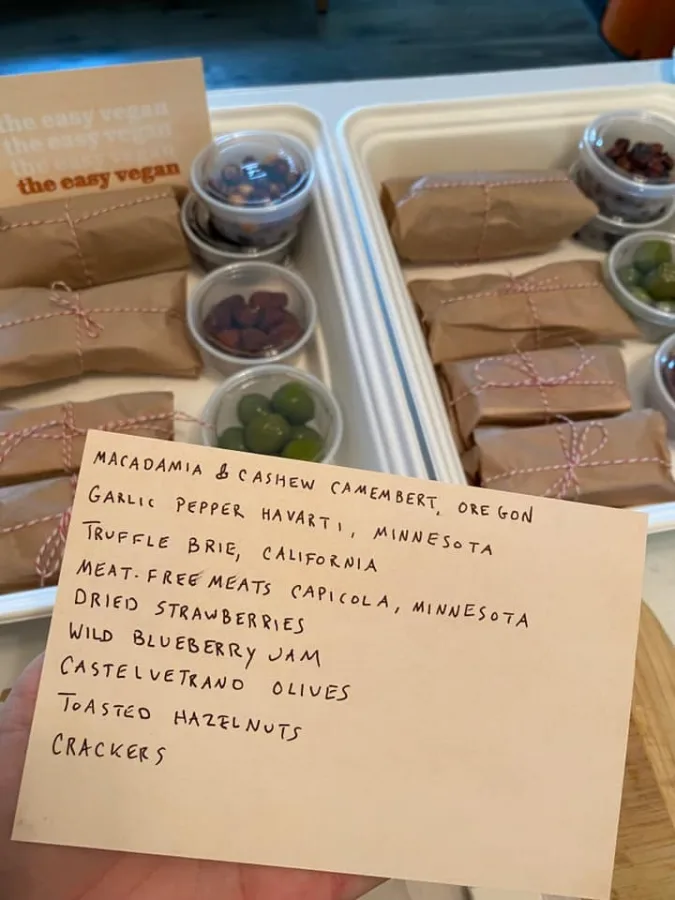 the easy vegan
the easy vegan
the easy vegan
the easy vegan
MACADAMIA & CASHEW CAMEMBERT, OREGON
GARLIC PEPPER HAVARTI, MINNESOTA
TRUFFLE BRIE, CALIFORNIA
MEAT-FREE MEATS CAPICOLA, MINNESOTA
DRIED STRAWBERRIES
WILD BLUEBERRY JAM
CASTELVETRANO OLIVES
TOASTED HAZELNUTS
CRACKERS